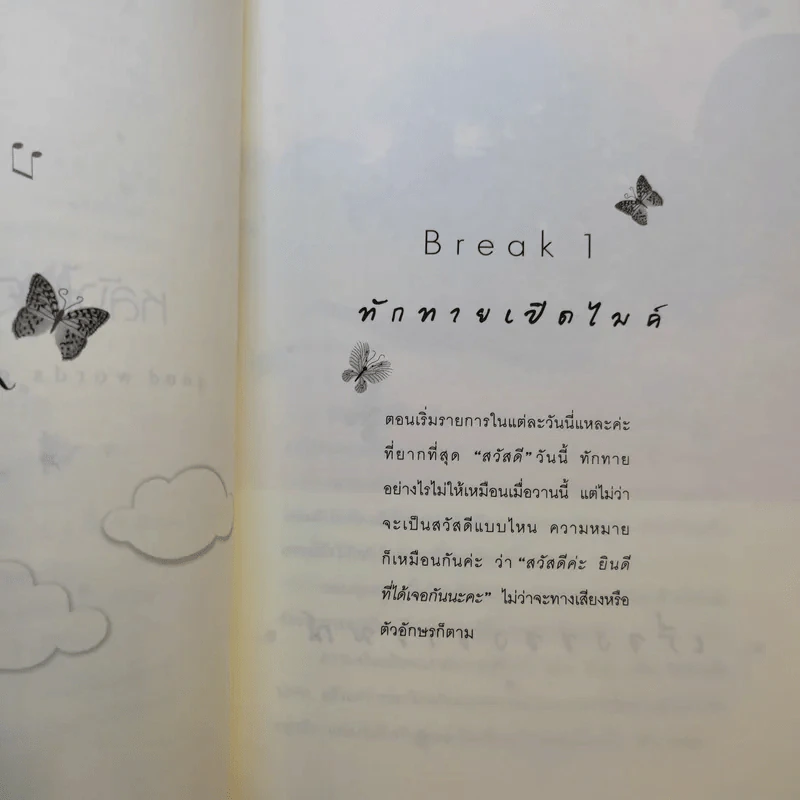 Break 1
ทักทายเปิดไมค์
ตอนเริ่มรายการในแต่ละวันนี่แหละค่ะ
ที่ยากที่สุด “สวัสดี” วันนี้ ทักทาย
อย่างไรไม่ให้เหมือนเมื่อวานนี้ แต่ไม่ว่า
จะเป็นสวัสดีแบบไหน ความหมาย
ก็เหมือนกันค่ะ ว่า “สวัสดีค่ะ ยินดี
ที่ได้เจอกันนะคะ” ไม่ว่าจะทางเสียงหรือ
ตัวอักษรก็ตาม